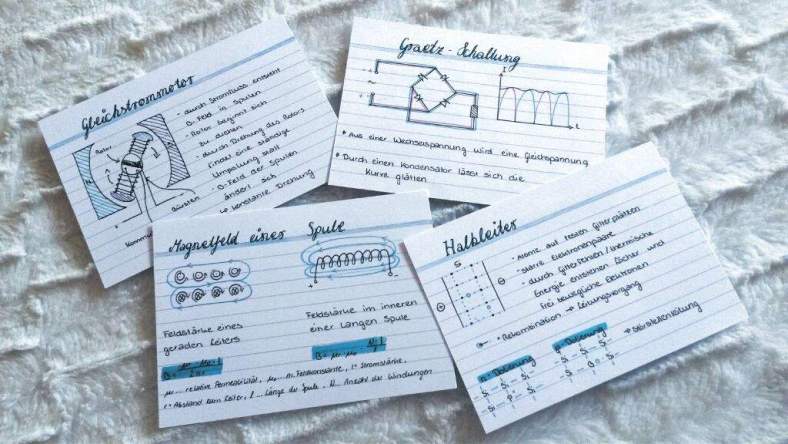 Gleichstrommotor
Rotor
Bürsten
- durch Stromfluss entsteht
B-Feld in Spulen
- Rotor beginnt sich
zu drehen
- durch Drehung des Rotors
findet eine ständige
Umpolung statt
- B-Feld der Spulen
ändert sich
konstante Drehung
Graetz-Schaltung
t
• Aus einer Wechselspannung wird eine Gleichspannung
• Durch einen Kondensator lässt sich die
Kurve glätten
Magnetfeld einer Spule
Feldstärke eines
geraden Leiters
Feldstärke im inneren
einer langen Spule
μr... relative Permeabilität, μ0... m. Feldkonstante, I... Stromstärke,
r... Abstand zum Leiter, l... Länge der Spule, N... Anzahl der Windungen
Halbleiter
Si
- Atome auf festen Gitterplätzen
- starre Elektronenpaare
- durch Gitterstörsen/thermische
Energie entstehen Löcher und
frei bewegliche Elektronen
- Rekombination → Leitungsvorgang
n-Dotierung
p-Dotierung
→ Störstellenleitung
- Si - Si - Si -
- Si - P - Si -
- Si - Si - Si -
- Si - B - Si -